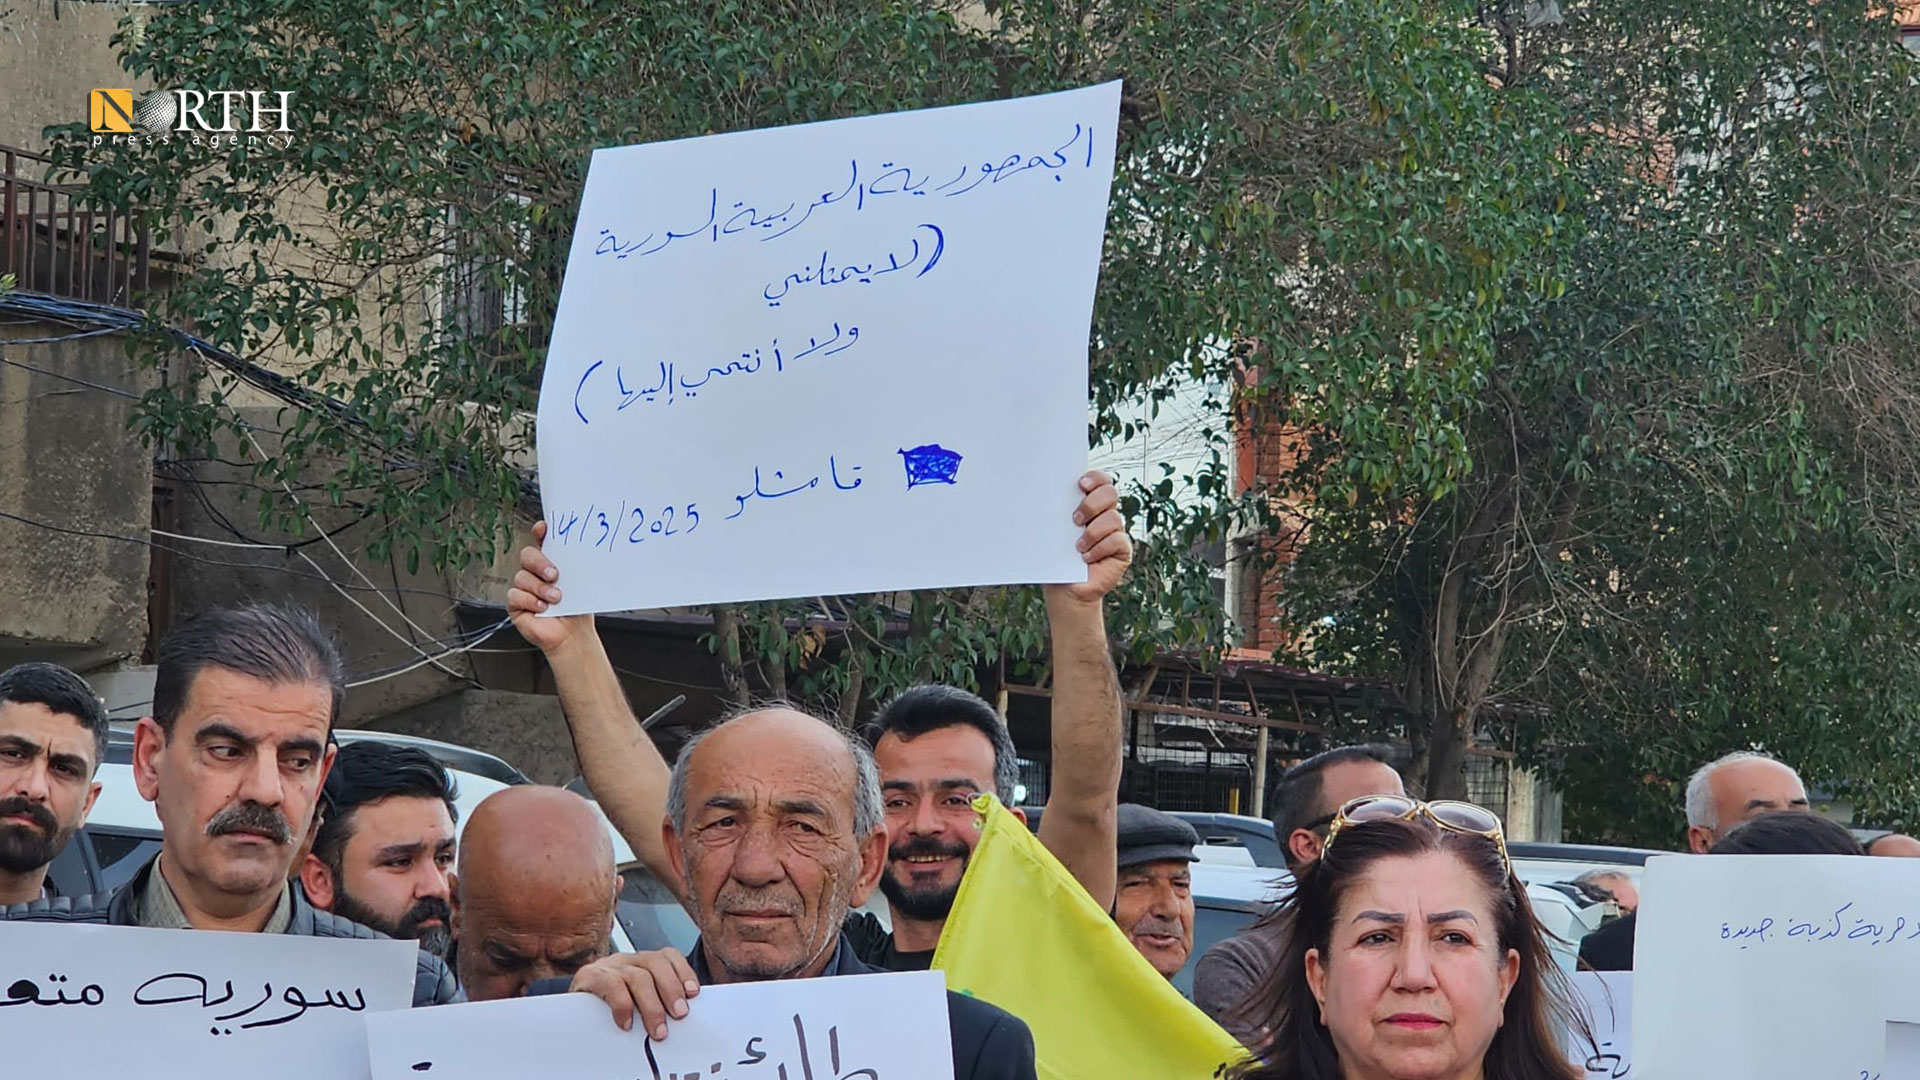 NORTH
press agency
الجمهورية العربية السورية
(لا يمثلني
ولا أنتمي إليها)
قامشلو 14/3/2025
سورية
حرية كذبة جديدة